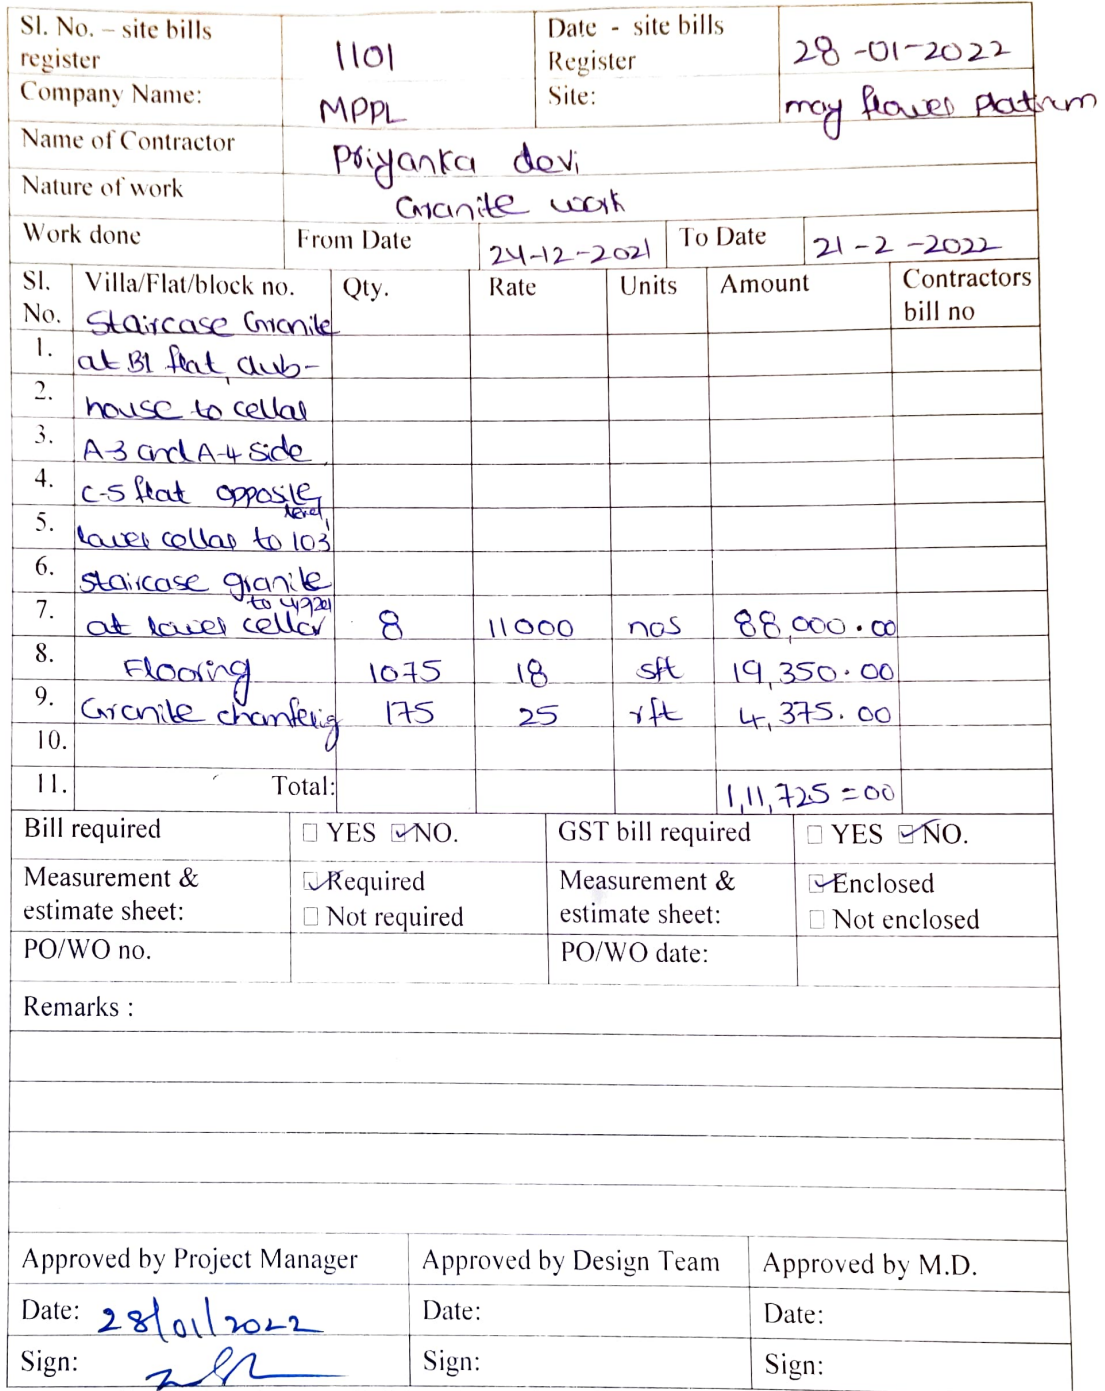 Sl. No. – site bills register 1101 Date - site bills Register 28-01-2022
Company Name: MPPL Site: may flower platinum
Name of Contractor Priyanka devi
Nature of work Granite work
Work done From Date 24-12-2021 To Date 21-2-2022
Sl. No. Villa/Flat/block no. Qty. Rate Units Amount Contractors bill no
Staircase Granite
1. at B1 flat, club-
2. house to cellar
3. A-3 and A-4 side
4. C-5 flat opposite
level,
5. lower cellar to 103
6. staircase granite
to
7. at lower cellar 8 11000 nos 88,000.00
8. Flooring 1075 18 sft 19,350.00
9. Granite chamferig 175 25 rft 4,375.00
10.
11. Total: 1,11,725=00
Bill required YES NO. GST bill required YES NO.
Measurement & estimate sheet: Required Measurement & estimate sheet: Enclosed
Not required Not enclosed
PO/WO no. PO/WO date:
Remarks :
Approved by Project Manager Approved by Design Team Approved by M.D.
Date: 28/01/2022 Date: Date:
Sign: Sign: Sign: